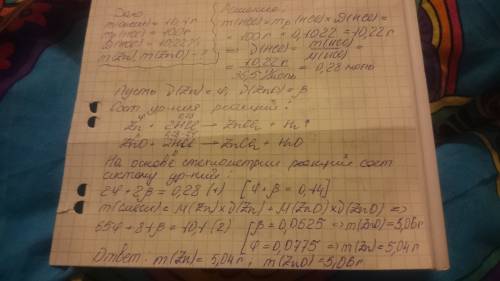 Дано:
m(смеси) = 10,1 г
mр(HCl) = 100 г
ω(HCl) = 10,22%
m(Zn), m(ZnO) - ?
Решение:
m(HCl) = mр(HCl) × ω(HCl) =
= 100 г × 0,1022 = 10,22 г
=> ν(HCl) = m(HCl) / M(HCl) =
= 10,22 г / 36,5 г/моль = 0,28 моль
Пусть ν(Zn) = φ, ν(ZnO) = β
Сост. ур-ния реакций:
Zn + 2HCl → ZnCl2 + H2↑
ZnO + 2HCl → ZnCl2 + H2O
На основе стехиометрии реакций сост.
систему ур-ний:
2φ + 2β = 0,28 (1) [φ + β = 0,14]
m(смеси) = M(Zn) × ν(Zn) + M(ZnO) × ν(ZnO) =>
65φ + 81β = 10,1 (2) [β = 0,0625 => m(ZnO) = 5,06 г
[φ = 0,0775 => m(Zn) = 5,04 г
Ответ: m(Zn) = 5,04 г; m(ZnO) = 5,06 г